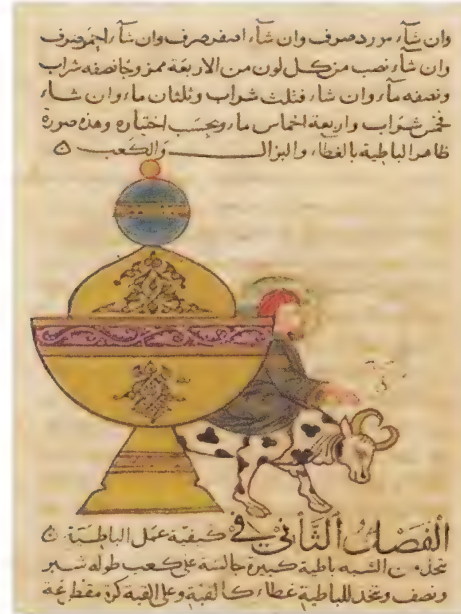 وان شآء مورد صرف وان شآء اصفر صرف وان شآء احمر صرف
وان شآء نصب من كل لون من الاربعة ممزوجا نصفه شراب
ونصفه مآء وان شآء فثلث شراب وثلثان مآء وان شآء
فخمس شراب واربعة اخماس مآء وبحسب اختياره وهذه صورة
ظاهر الباطية بالغطآء والبزال والكعب
الفصل الثاني في كيفية عمل الباطية
تتخذ من الشبه باطية كبيرة جالسة على كعب طوله شبر
ونصف وتتخذ للباطية غطآء كالقبة وعلى القبة كرة مفرغة